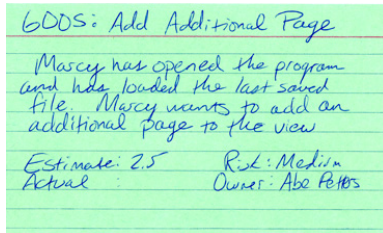 6005: Add Additional Page
Marcy has opened the program
and has loaded the last saved
file. Marcy wants to add an
additional page to the view
Estimate: 2.5 Risk: Medium
Actual : Owner: Abe